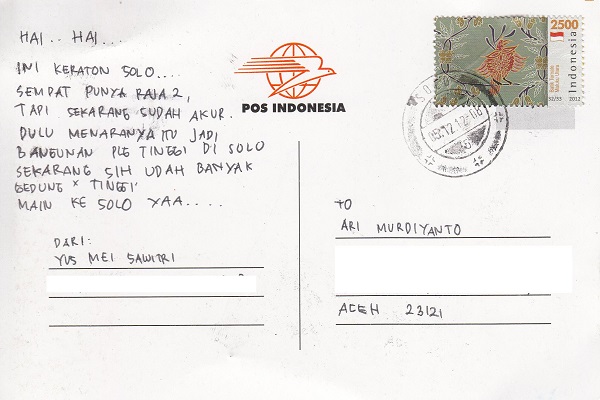 HAI.. HAI....
INI KERATON SOLO....
SEMPAT PUNYA RAJA 2,
TAPI SEKARANG SUDAH AKUR.
DULU MENARANYA ITU JADI
BANGUNAN PLG TINGGI DI SOLO
SEKARANG SIH UDAH BANYAK
GEDUNG × TINGGI
MAIN KE SOLO YAA.....
DARI:
YUS MEI SAWITRI
POS INDONESIA
2500
Indonesia
2012
TO
ARI MURDIYANTO
ACEH 23121